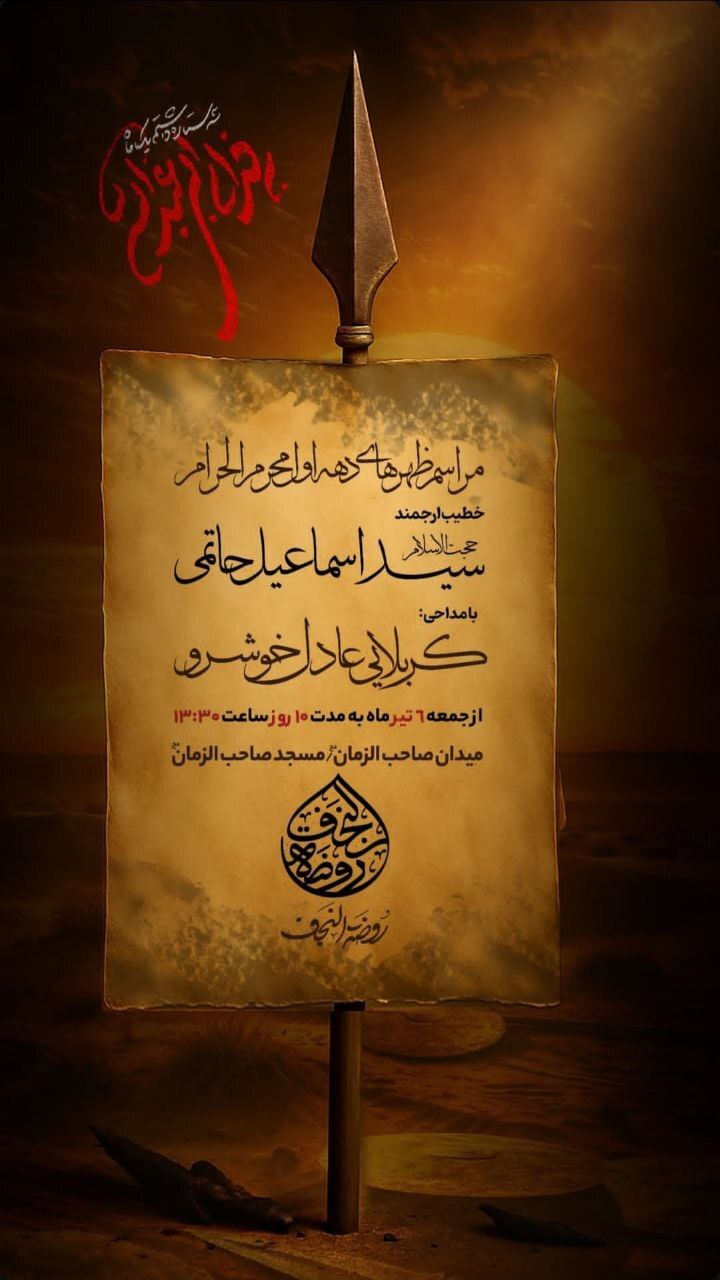 سه ستاره داشتم یک ماه
مراسم ظهرهای دهه اول محرم الحرام
خطیب ارجمند
حجت الاسلام
سید اسماعیل حاتمی
بامداحی:
کربلایی عادل خوشرو
از جمعه ٦ تیر ماه به مدت ١٠ روز ساعت ١٣:٣٠
میدان صاحب الزمان / مسجد صاحب الزمان
روضة النجف
روضة النجف